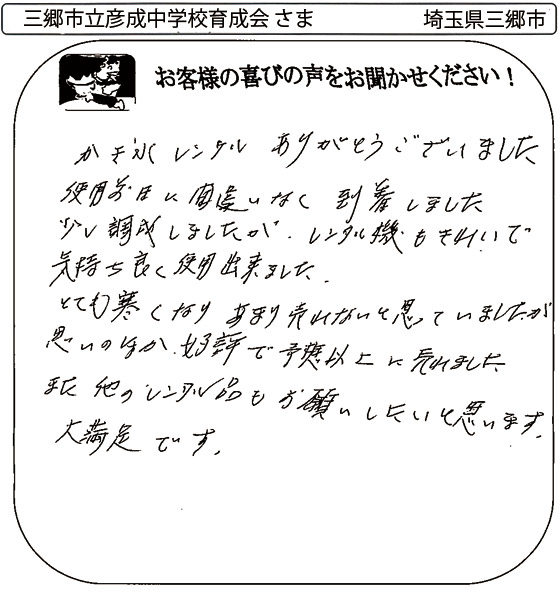 三郷市立彦成中学校育成会 さま 埼玉県三郷市
お客様の喜びの声をお聞かせください！
かき氷 レンタル ありがとうございました
使用前日に間違いなく 到着しました
少し調成しましたが、レンタル機もきれいで
気持ち良く使用出来ました.
とても寒くなり あまり売れないと思っていましたが
思いのほか 好評で予想以上に売れました
また 他のレンタル品もお願いしたいと思います.
大満足です.